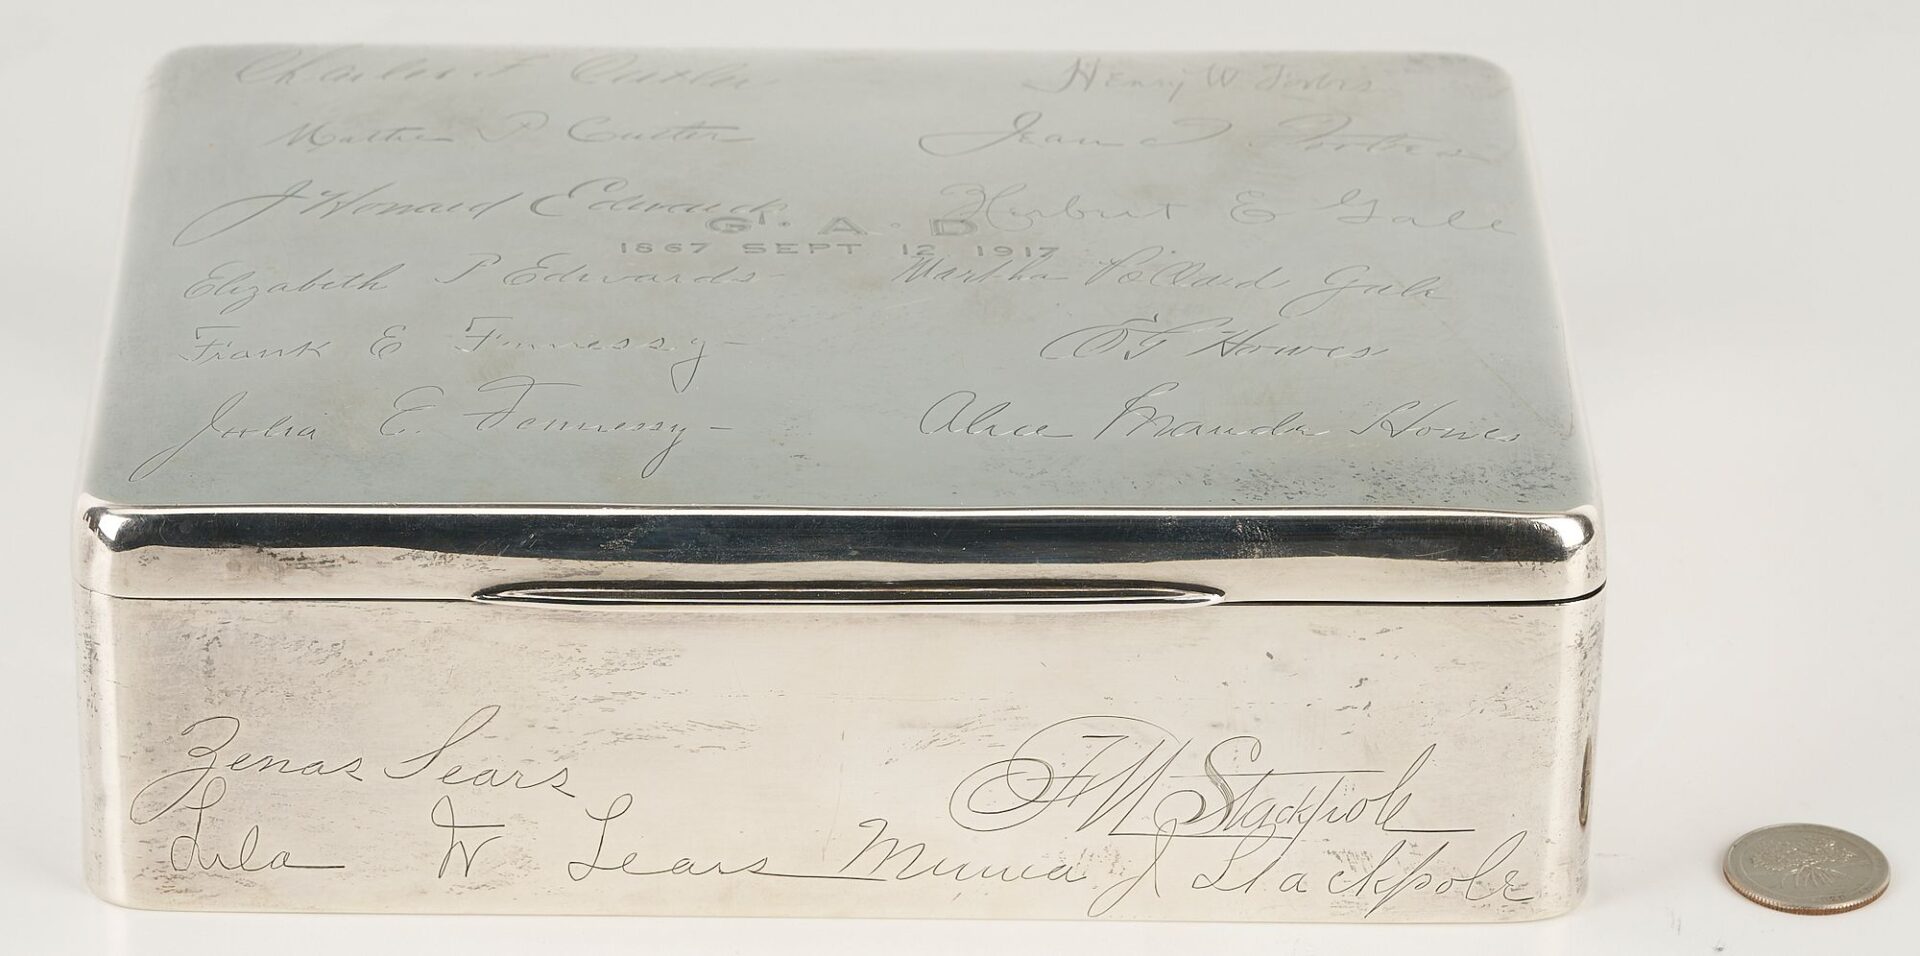 Charles F Cutler
Henry W Forbes
Martha P Cutter
Jean Forbes
J Howard Edwards
Herbert E Gale
G · A · D
1867 SEPT 12 1917
Elizabeth P Edwards
Martha Pollard Gale
Frank E Fennessy
Howes
Julia E. Fennessy
Alice Maude Howes
Zenas Sears
FW Stackpole
Lula W Sears
J Stackpole